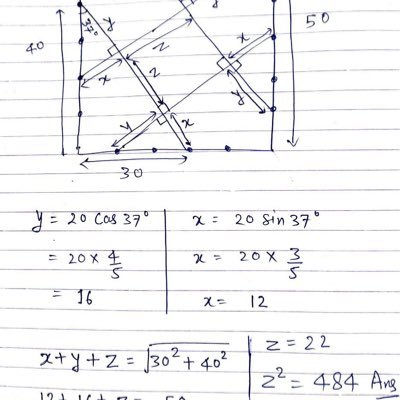 37°
y
y
50
40
z
x
x
z
y
y
x
30
y = 20 cos 37°
= 20 × 4/5
= 16
x = 20 sin 37°
x = 20 × 3/5
x = 12
x + y + z = √30² + 40²
z = 22
z² = 484 Ans